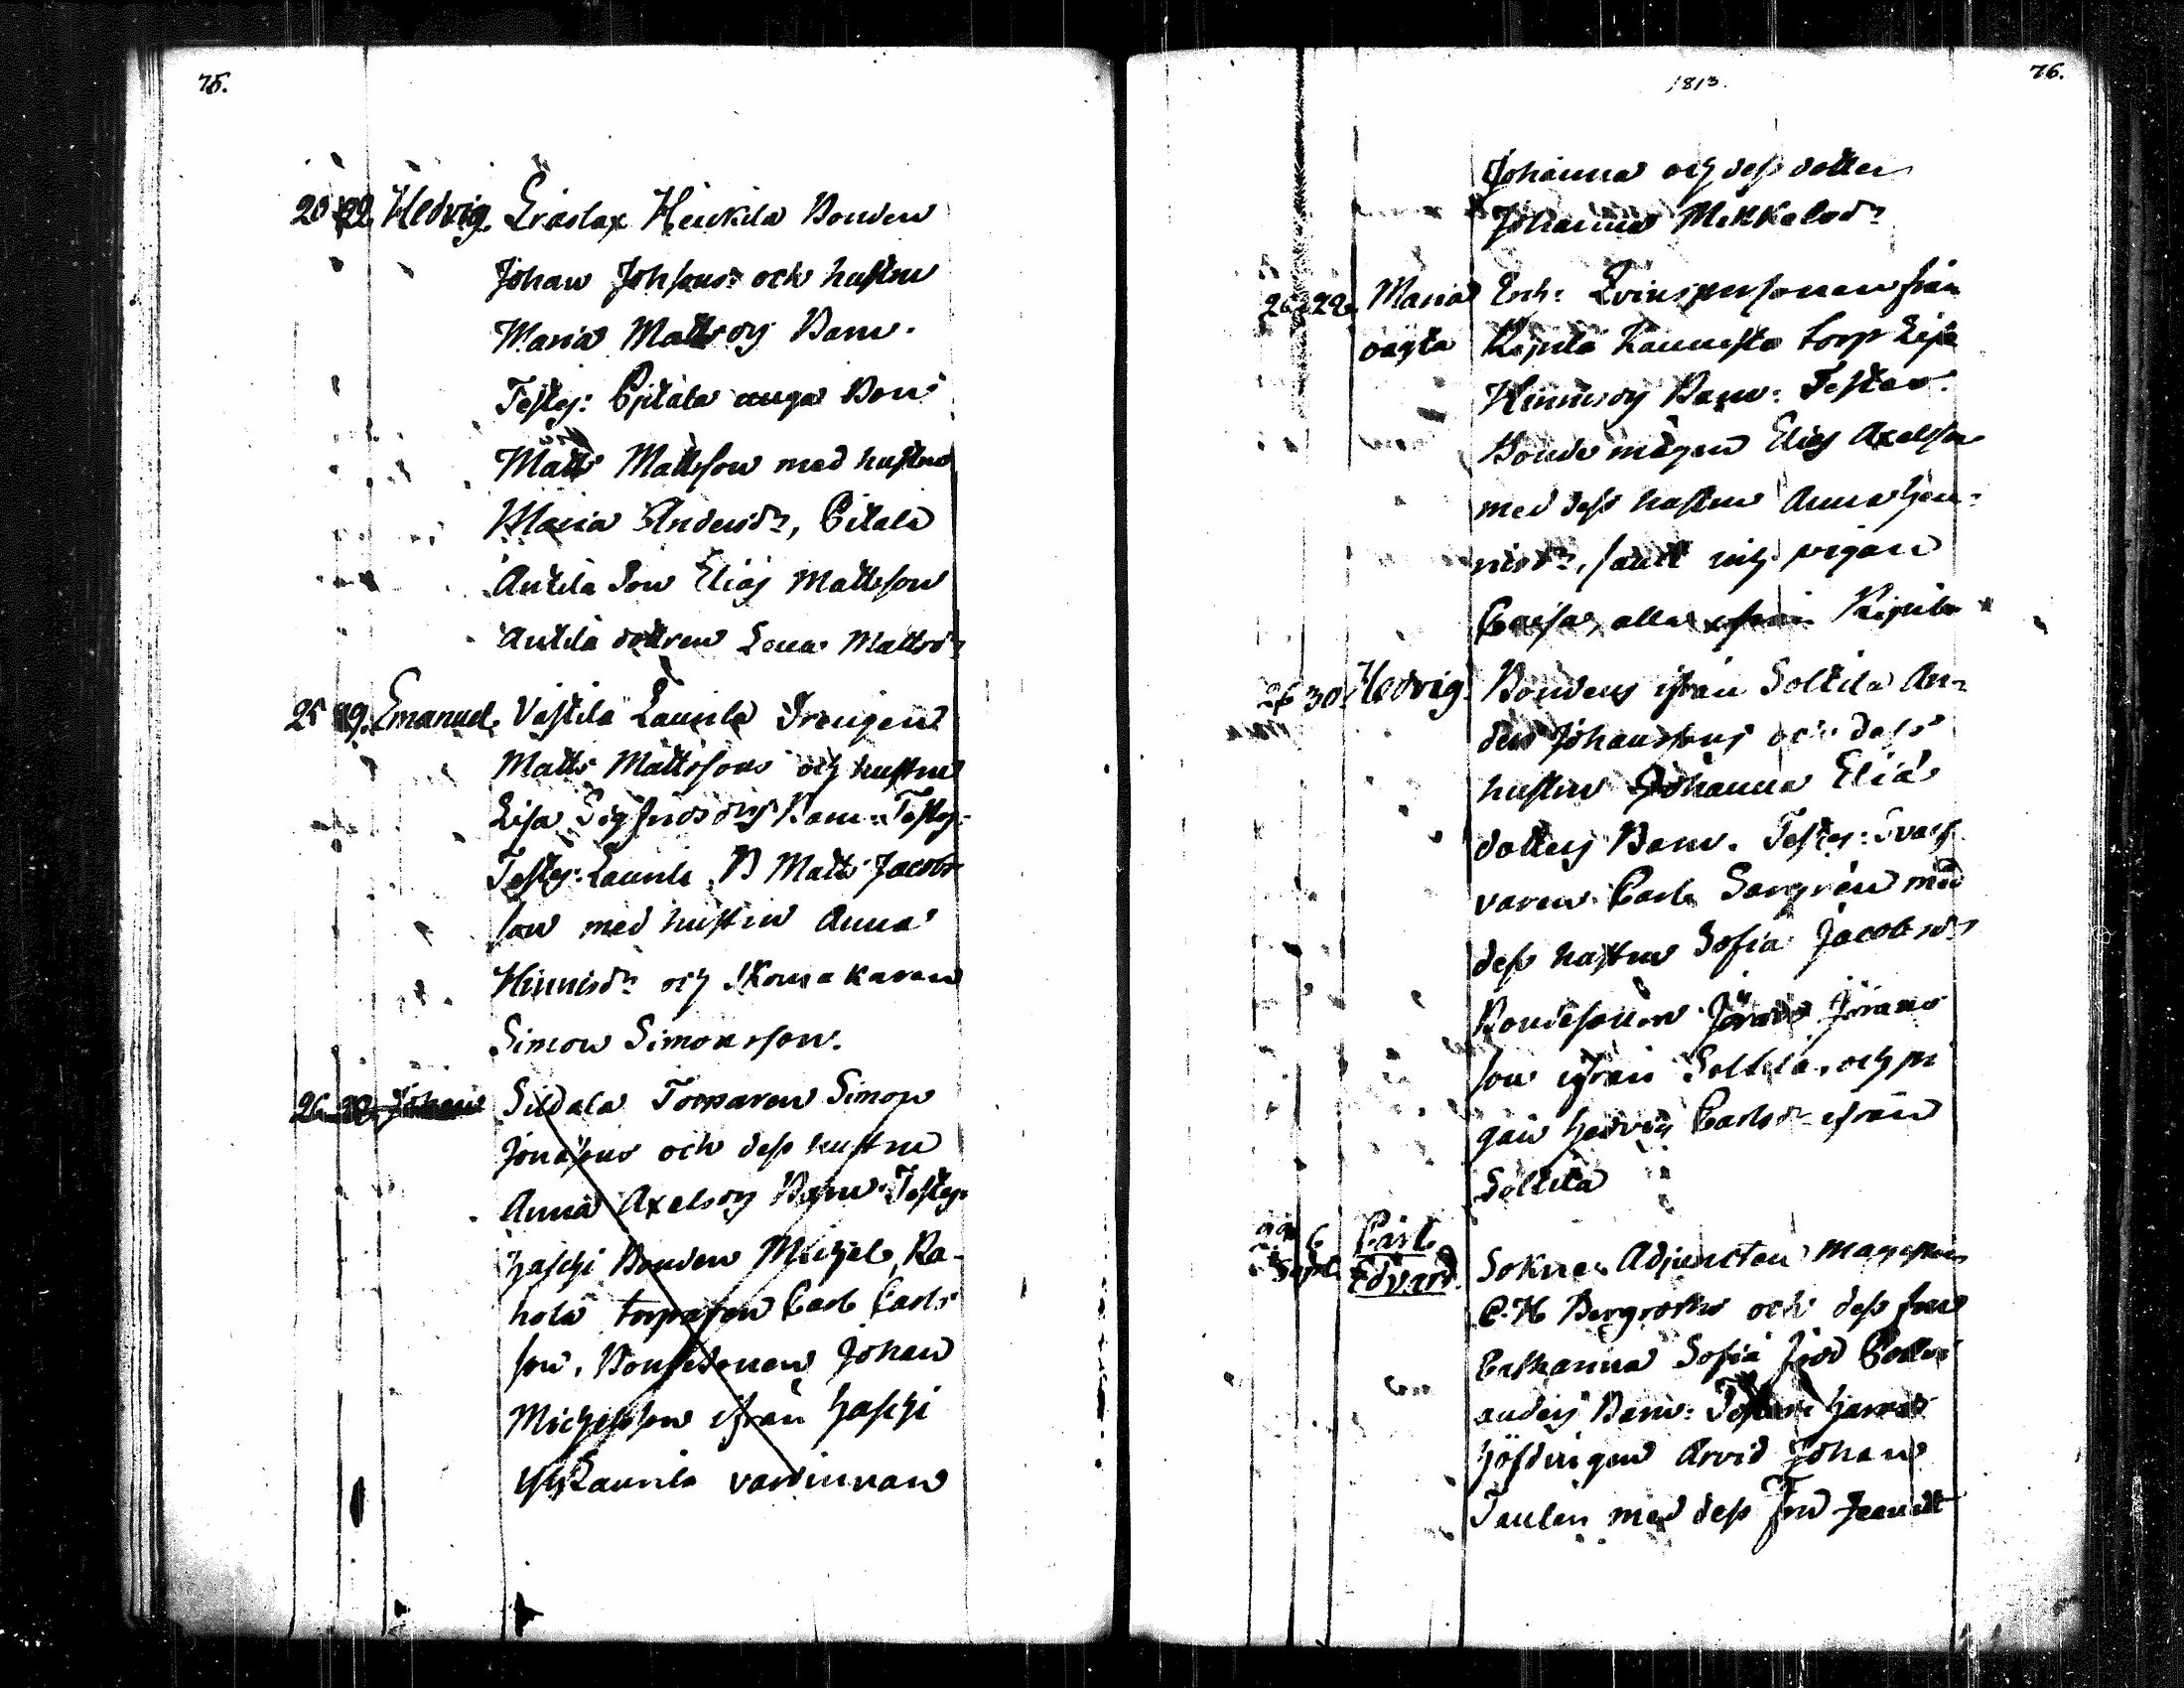 75.
20 22 Hedvig. Eräslax Heickilä Bonden
Johan Johansons och hustru
Maria Mattsdrs Barn.
Testes: Pitala unga Bon
Matts Mattsson med hustru
Maria Andersdr, Pitala
Anttila Son Elias Mattsson
Anttila dottren Lena Mattsdr
25 29. Emanuel. Västilä Laurila Drengen
Matts Mattssons och hustru
Lisa Sigfredsdrs Barn. Testes:
Testes: Laurila B Matts Jacobs
son med hustru Anna
Hinrisdr och Skomakaren
Simon Simonsson.
26 28 Johan Sildala Torparen Simon
Jonassons och dess hustru
Anna Axelsdrs Barn. Testes:
Haschi Bonden Michel, Ra-
hola torparen Carl Carls
son, Bondesonen Johan
Michelsson ifrån Haschi
Laurila värdinnan
1813.
76.
Johanna och dess dotter
Johanna Mickelsdr
26 28. Maria Och: Qvinspersonen från
oägta Kipilä Kannisto torp Lisa
Hinrisdrs Barn: Testes:
Bonde mågen Elias Axelsson
med dess hustru Anna Hen-
risdr, samt pigan
Caisa, alla från Kipilä
26 30. Hedvig. Bondens ifrån Solttila An-
ders Johanssons och dess
hustru Johanna Elias
dotters Barn. Testes: Svarf
varen Carl Sangren med
dess hustru Sofia Jacobsdr
Bondesonen Jöran Jörans
son ifrån Solttila, och pi
gan Hedvig Carlsdr ifrån
Solttila
29 6 Carl
Sept. Edvard. Sokne Adjuncten Magistern
C. H Bergroths och dess fru
Catharina Sofia född
anders Barn: Testes: Härads
höfdingen Arvid Johan
Taulen med dess Fru